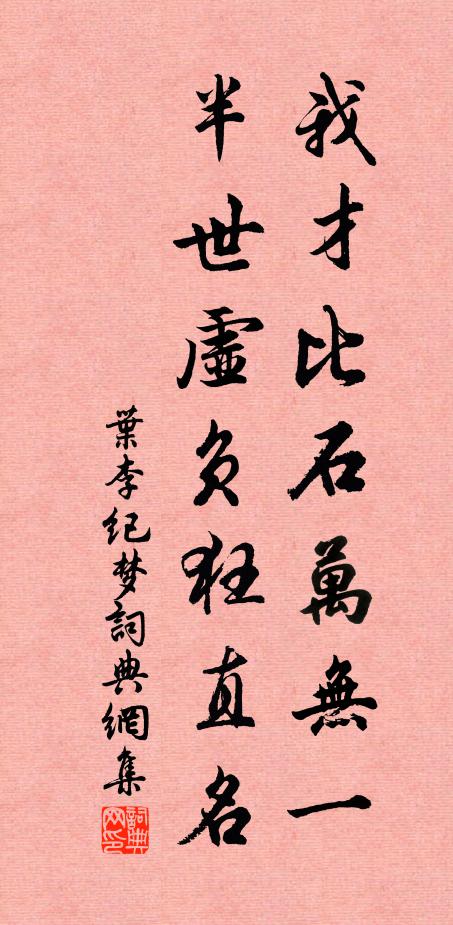 我才比石萬無一
半世虛負狂直名
葉李纪梦詞典網集
詞典网印